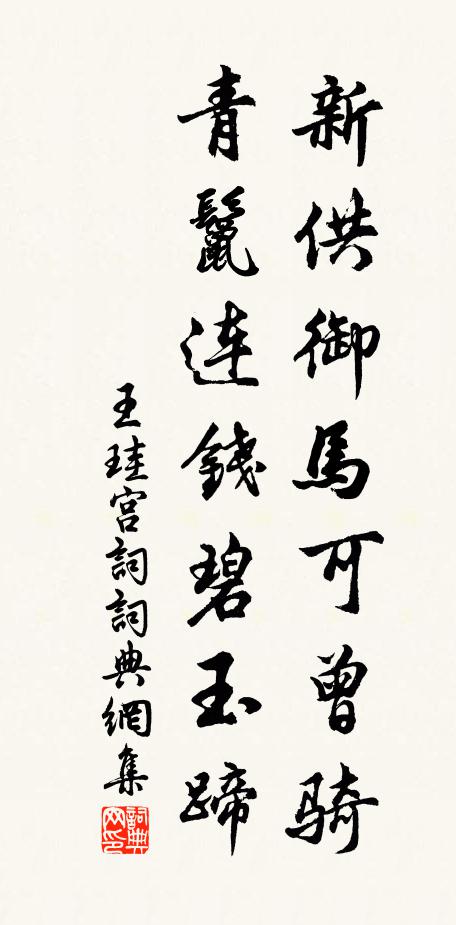 新供御馬可曾騎
青鬣連錢碧玉蹄
王珪宮詞詞典網集
詞典網印